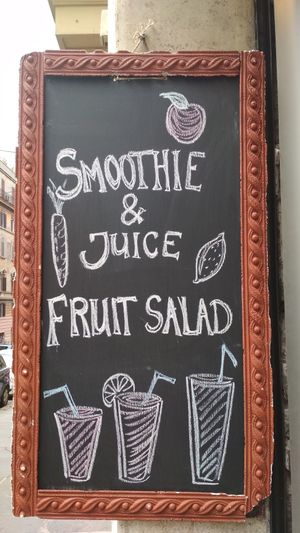 SMOOTHIE
&
JUICE
FRUIT SALAD